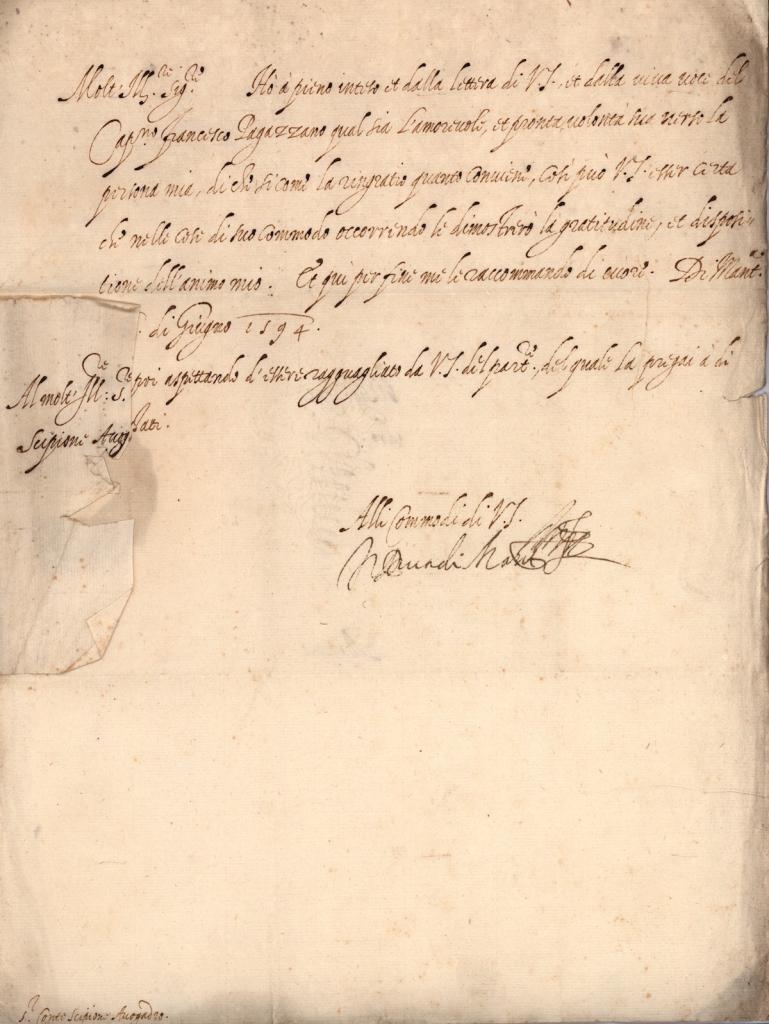 Molt' Ill.re Sig.re Hò à pieno inteso et dalla lettera di V.S., et dalla viva voce del
Cap.no Francesco Pagazzano qual sia l'amorevole, et pronta volontà sua verso la
persona mia, di che sì come la ringratio quanto conviene, così può V.S. esser certa
che nelle cose di suo commodo occorrendo le dimostrerò la gratitudine, et disposi-
tione dell'animo mio. Et qui per fine me le raccommando di cuore. Di Mant.a
di Giugno 1594.
poi aspettando d'essere ragguagliato da V.S. del part.re, del quale la pregai à dì
Al molt' Ill.re S.re
Scipione Avog
Alli Commodi di V.S.
Il Duca di Mant
S.r Conte Scipione Avogadro.